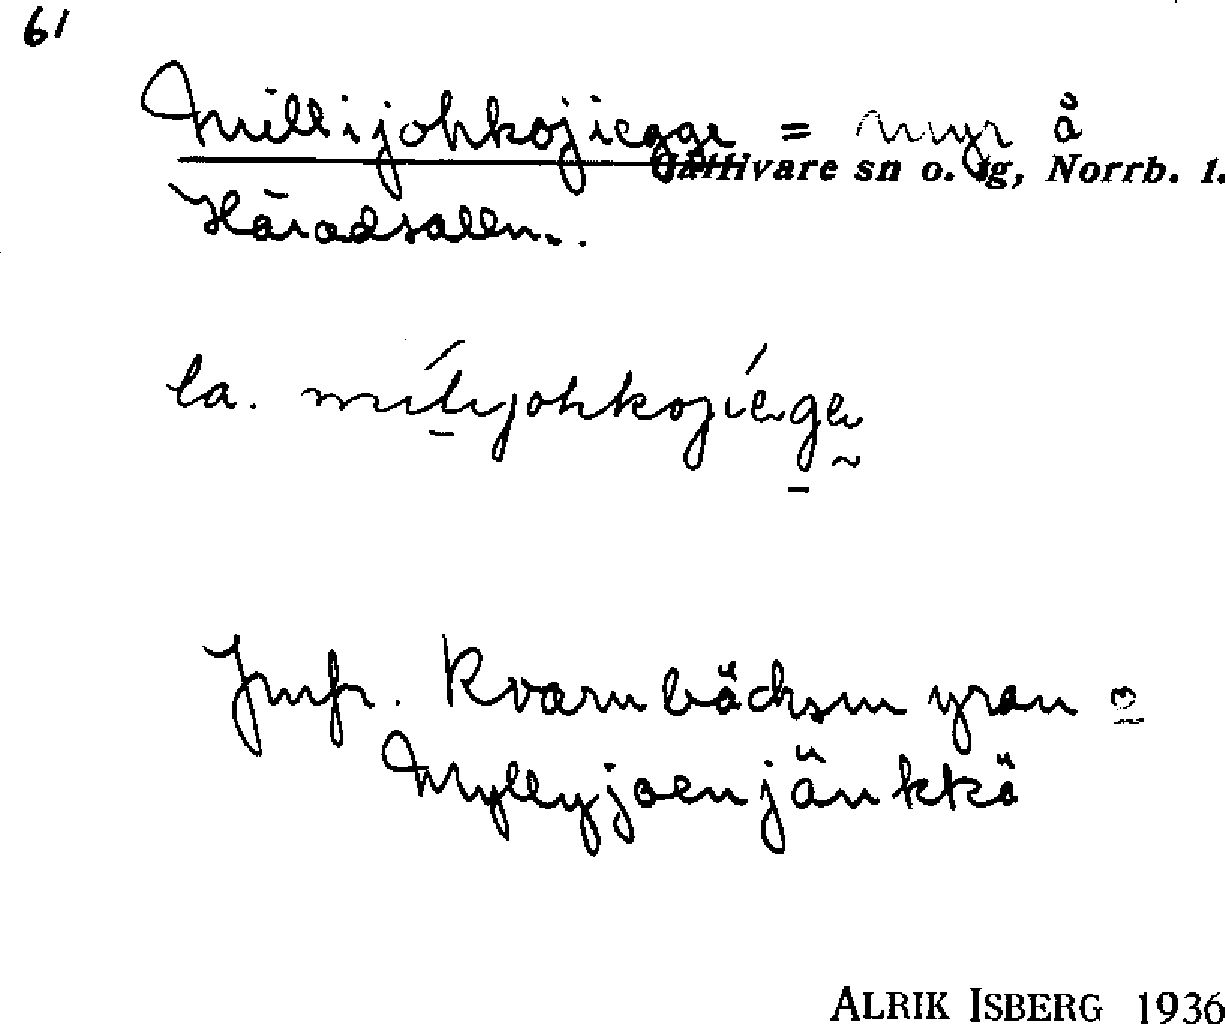 61
Millijohkojiegge = myr å
Gällivare sn o. tg, Norrb. l.
Häradsallm.
la. mílijohkojíegge
Jmfr. Kvarnbäcksmyran =
Myllyjoenjänkkä
ALRIK ISBERG 1936